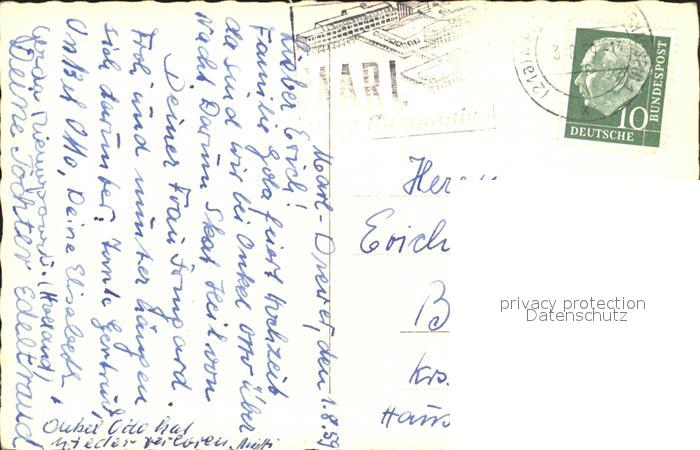 Marl-Drewer, den 1.8.59
Lieber Erich!
Familie Gda feiert Hochzeit
da sind wir bei Onkel Otto über
Nacht Darum Skat Heil von
Deiner Frau Irmgard.
Froh und munter hängen
sich darunter: Tante Gertrud,
Onkel Otto, Deine Elisabeth +
(Holland) +
Deine Tochter Edeltraud
Onkel Otto hat
wieder verloren.
MARL
3.8.
10
DEUTSCHE
BUNDESPOST
Her
Erich
B
Krs.
Haus
privacy protection
Datenschutz